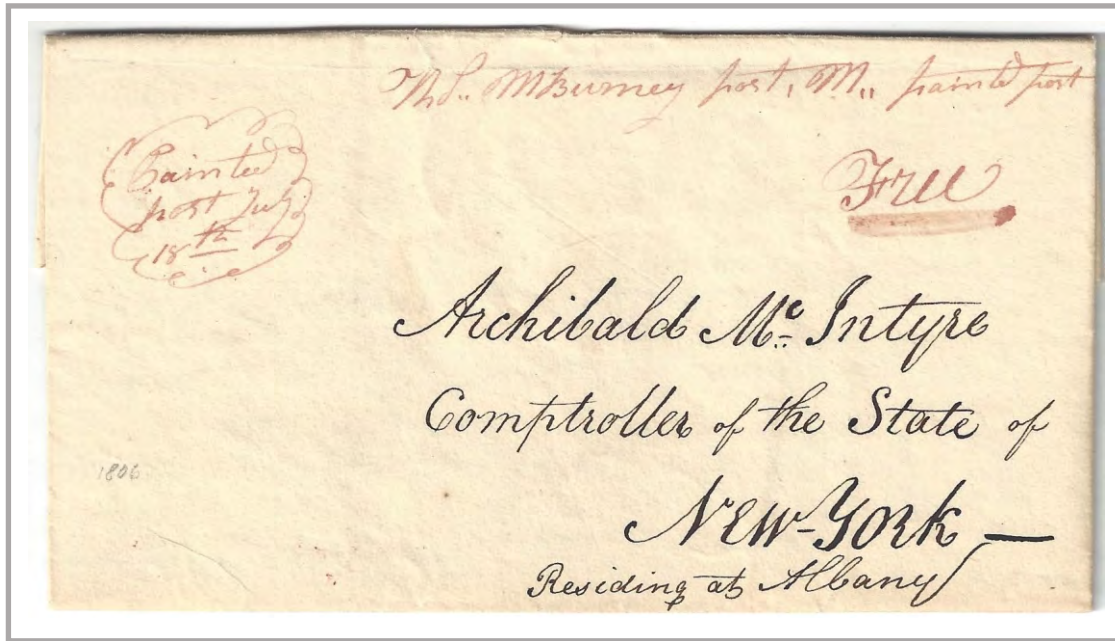 McBurney post, M., painted post
Painted
post July
18th
Free
Archibald Mc. Intyre
Comptroller of the State of
New-York —
Residing at Albany
1806